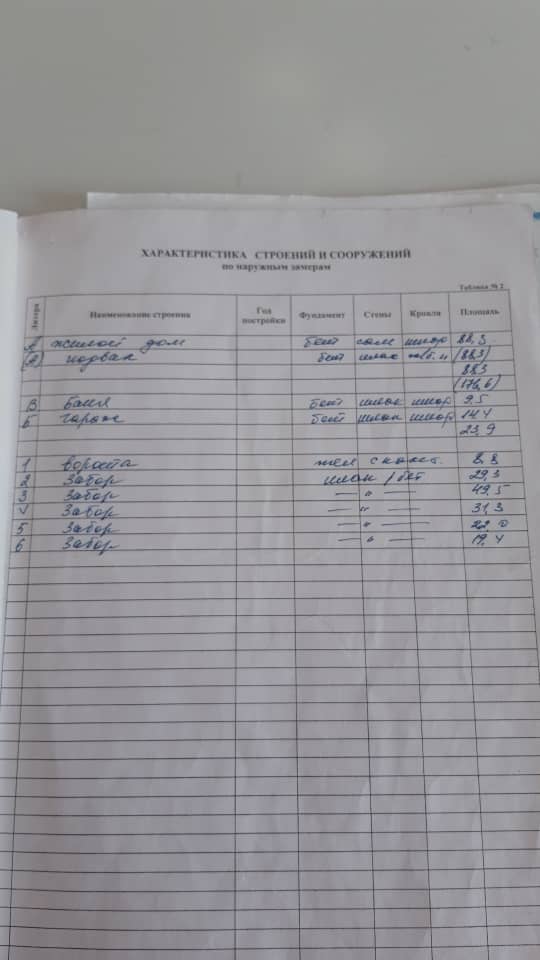 ХАРАКТЕРИСТИКА СТРОЕНИЙ И СООРУЖЕНИЙ
по наружным замерам
Таблица № 2
Литера Наименование строения Год постройки Фундамент Стены Кровля Площадь
А жилой дом бет сам шифр 88,3
(А) подвал бет шлак ж/б.п (88,3)
88,3
(176,6)
В баня бет шлак шифр 9,5
Б гараж бет шлак шифр 14,4
23,9
1 ворота жел с калит. 8,8
2 Забор шлак / бет 29,3
3 Забор — " — 49,5
Забор — " — 31,3
5 Забор — " — 22,0
6 Забор — " — 19,4